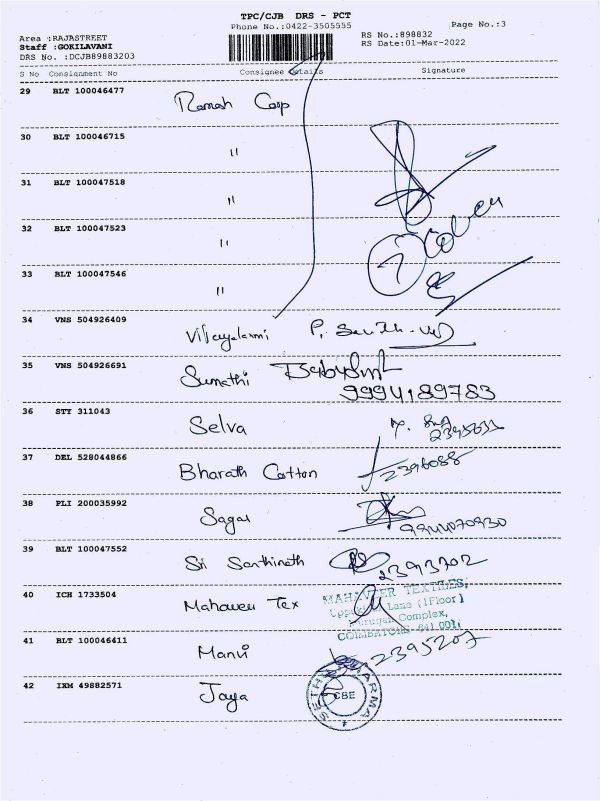 TPC/CJB DRS - PCT
Phone No.:0422-3505555
Page No.:3
Area :RAJASTREET
RS No.:898832
Staff :GOKILAVANI
RS Date:01-Mar-2022
DRS No. :DCJB89883203
S No Consignment No Consignee details Signature
29 BLT 100046477
Ramesh Corp
30 BLT 100046715
"
31 BLT 100047518
"
32 BLT 100047523
"
33 BLT 100047546
"
34 VNS 504926409
Vijayalaxmi
35 VNS 504926691
Sumathi
9994189783
36 STY 311043
Selva
37 DEL 528044866
Bharath Cotton 2396088
38 PLI 200035992
Sagar 9944070930
39 BLT 100047552
Sri Santhinath 2393702
40 ICH 1733504
Mahaveer Tex
MAHAVEER TEXTILES,
Lane (1Floor)
Murugan Complex,
COIMBATORE-641 001
41 BLT 100046411
Manvi 2395207
42 IXM 49882571
Jaya
SETHIA PHARMA
CBE